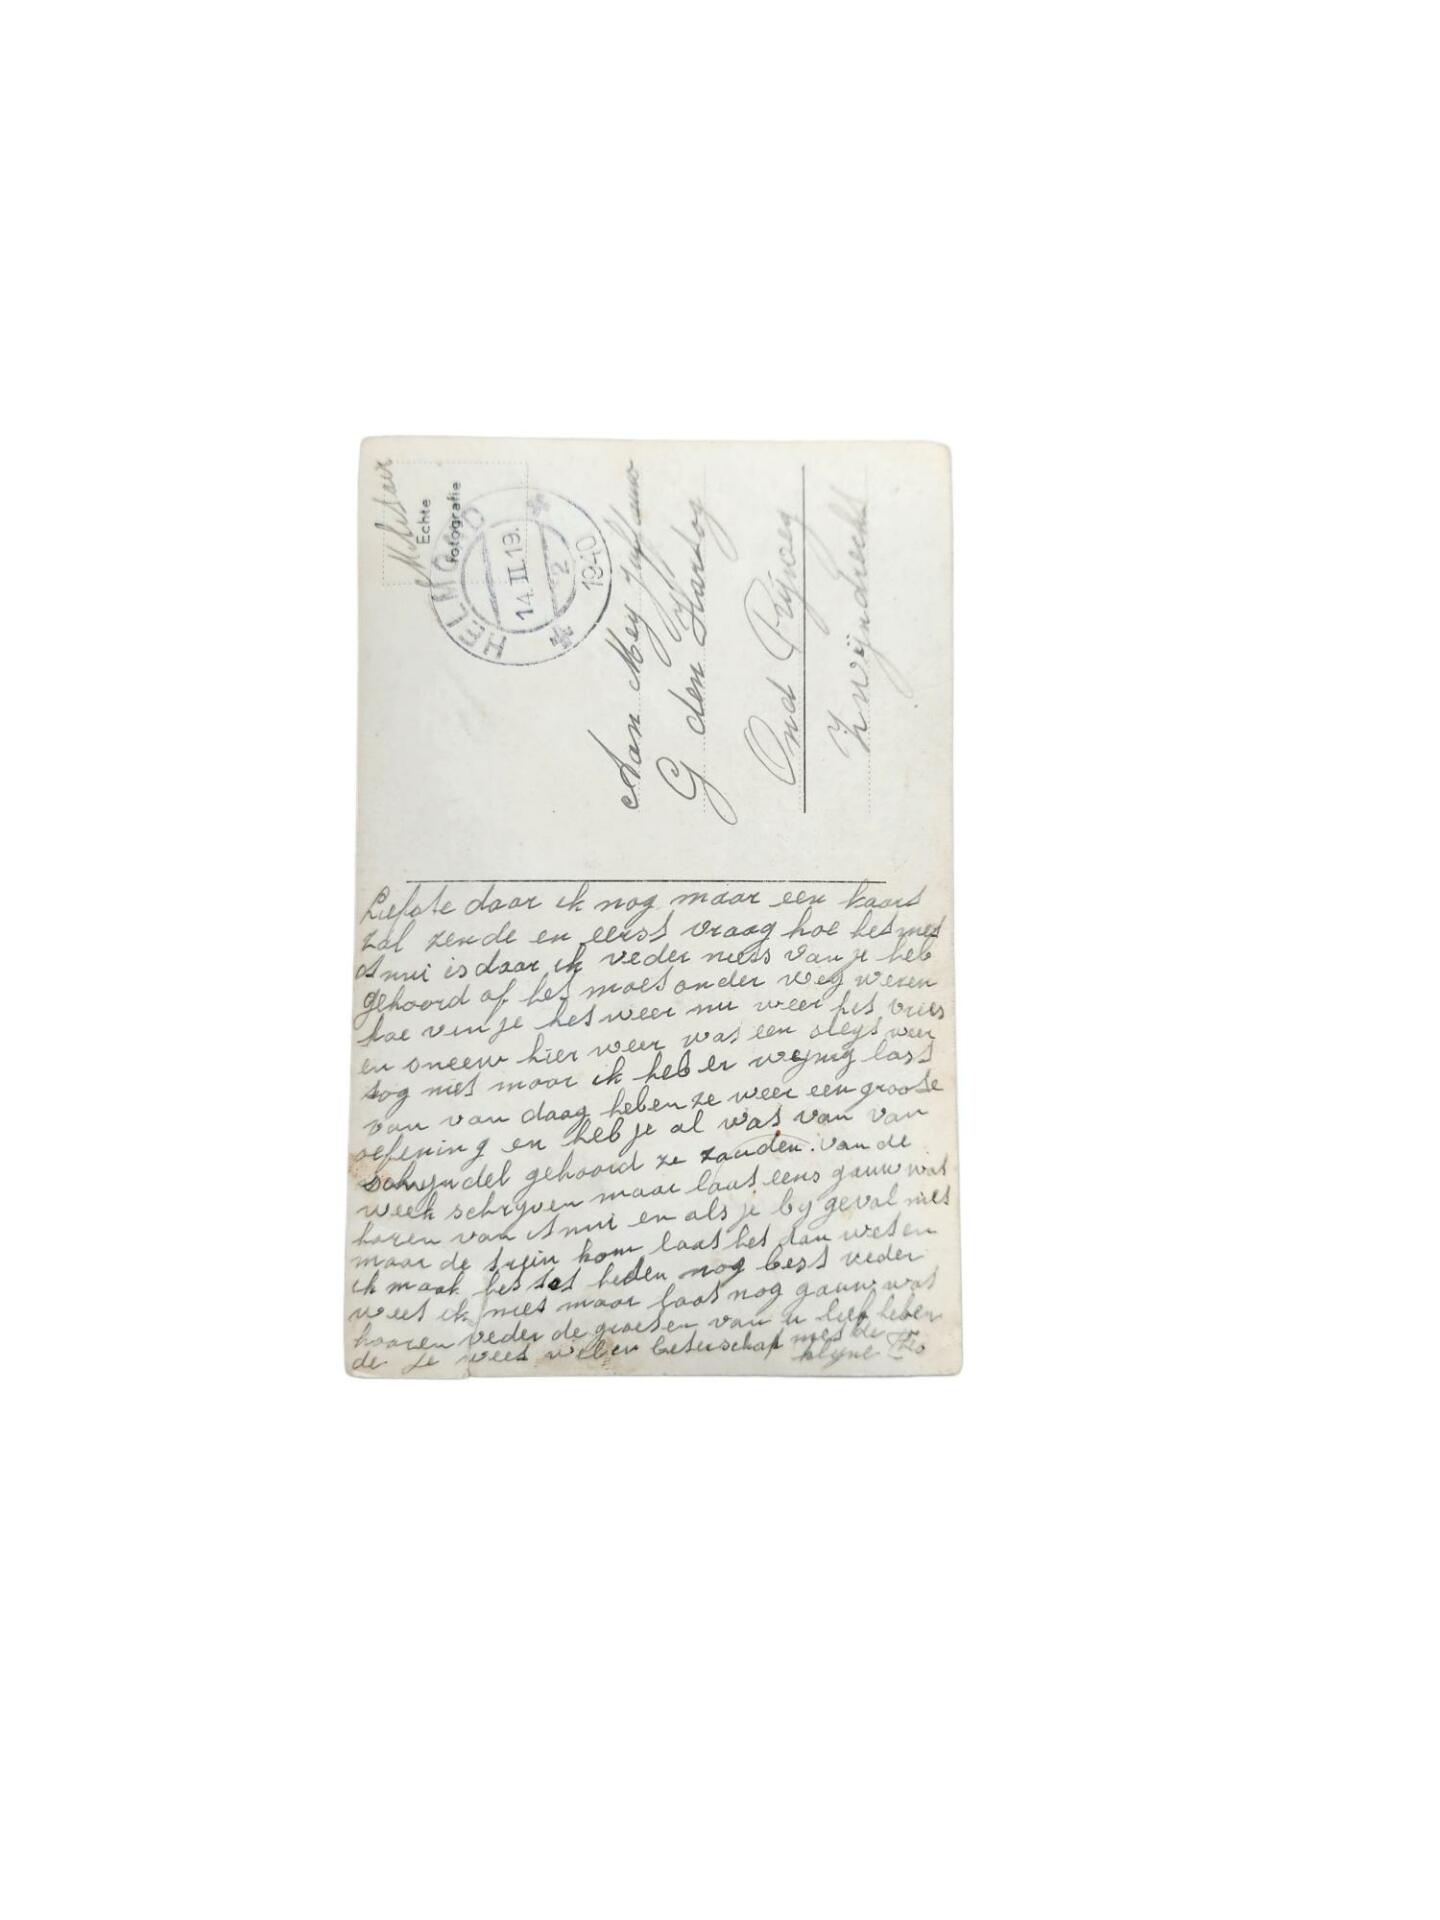 Militair
Echte
fotografie
HELMOND
14.II.19.
2
1940
Aan Mej Juffauw
G den Hartog
Oud
Zwijndrecht
Liefste daar ik nog maar een kaart
zal zende en eerst vraag hoe het met
Anni is daar ik veder niets van je heb
gehoord of het moet onder weg wezen
hoe vin je het weer nu weer het vries
en sneew hier weer wat een weer
tog niet maar ik heb er wejnig last
van van daag heben ze weer een groote
oefening en heb je al wat van van
schyndel gehoord ze zouden van de
week schryven maar laat eens gauw wat
horen van Anni en als je by geval met
maar de trein kom laat het dan weten
ik maak het tot heden nog best veder
weet ik niet maar laat nog gauw wat
hooren veder de groeten van u lief heben
de je weet wel en beterschap met de
klyne Theo